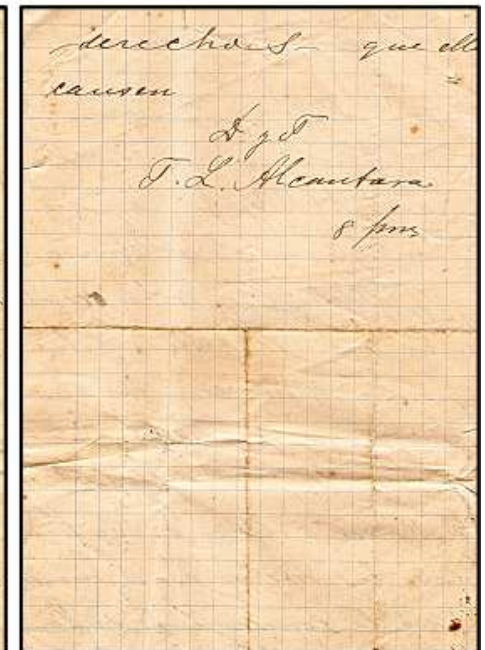 derechos— que ell
=
causen
D y T
T. L. Alcantara
8 pm